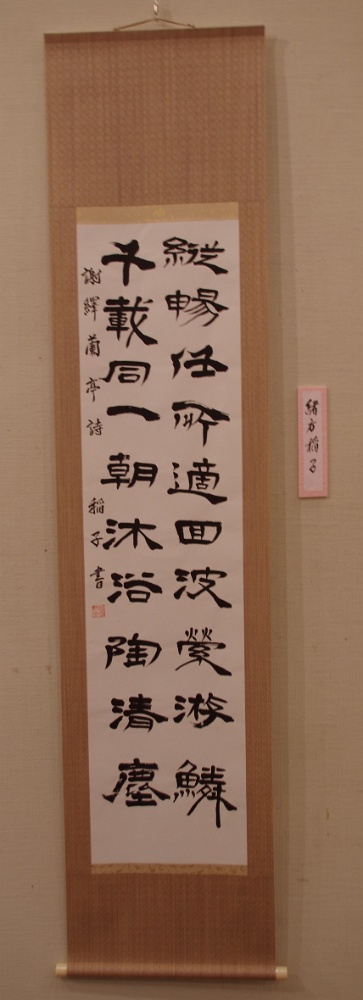 縦暢任所適回波縈游鱗
千載同一朝沐浴陶清塵
謝繹蘭亭詩 稲子書
緒方稲子